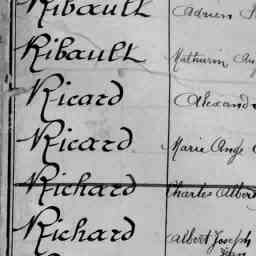 Ribault Adrien
Ribault Mathurin
Ricard Alexand
Ricard Marie Ange
Richard Charles Albert
Richard Albert Joseph
Jean